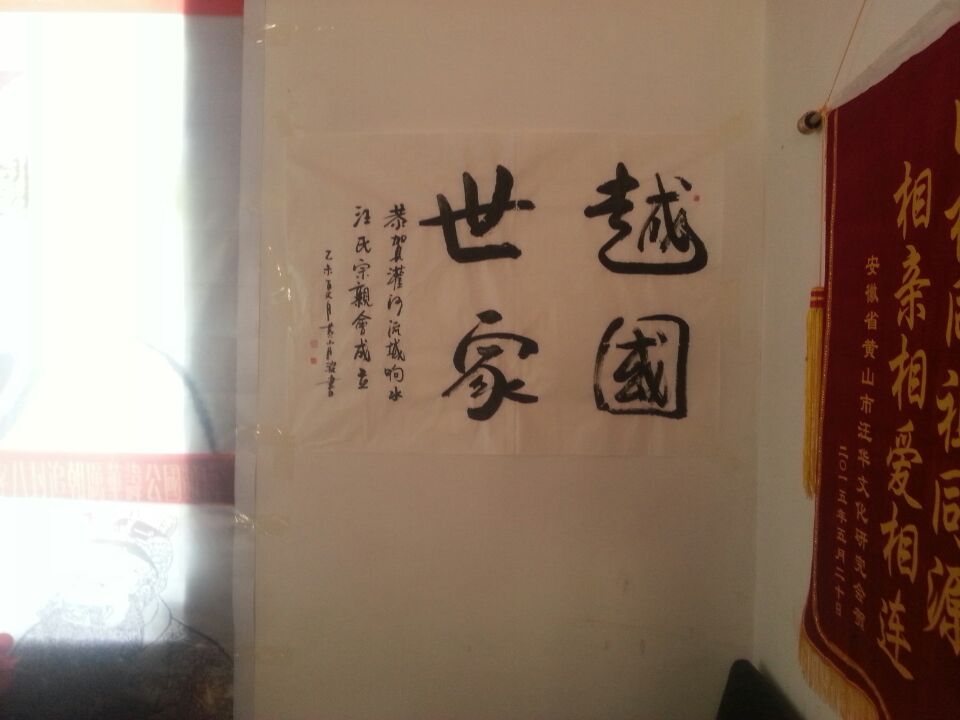 越國
世家
恭賀灌河流域响水
汪氏宗親會成立
乙未
書
同祖同源
相亲相爱相连
安徽省黄山市汪华文化研究会贺
二〇一五年五月二十日